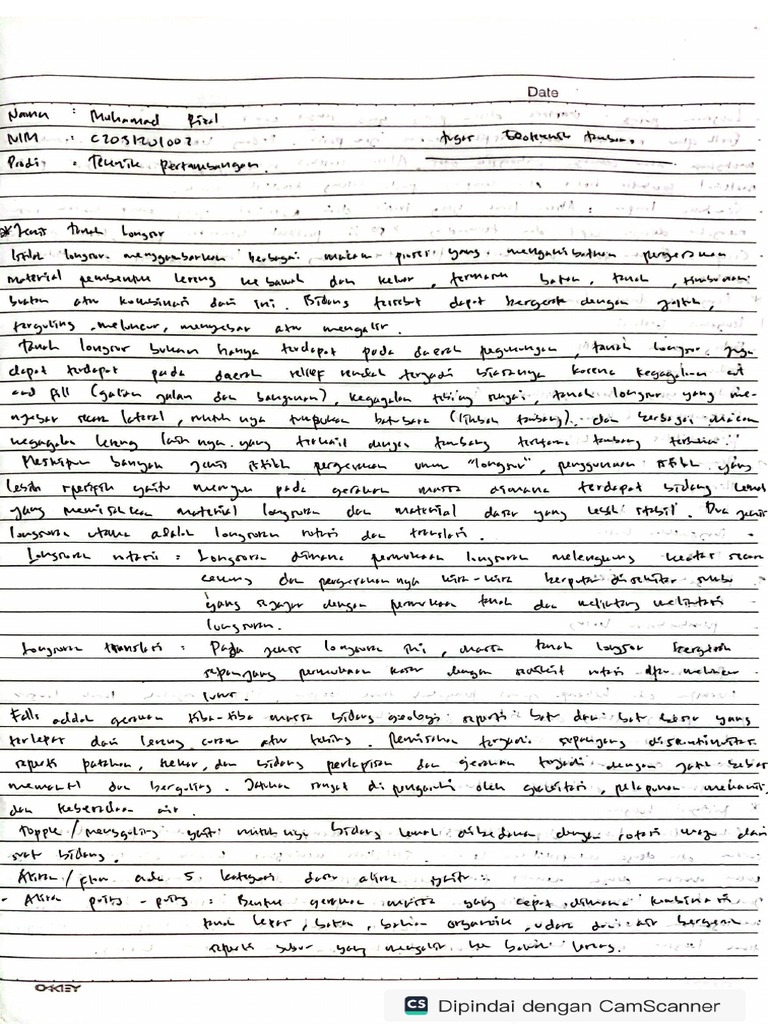 Date
Nama : Muhamad Rizal
NIM : C2031201002 tugas Geoteknik tambang.
Prodi : Teknik Pertambangan.
* Jenis tanah longsor
Istilah longsor menggambarkan berbagai macam proses yang mengakibatkan pergerakan
material pembentuk lereng ke bawah dan keluar, termasuk batuan, tanah, timbunan
buatan atau kombinasi dari ini. Bidang tersebut dapat bergerak dengan jatuh,
terguling, meluncur, menyebar atau mengalir.
Tanah longsor bukan hanya terdapat pada daerah pegunungan, tanah longsor juga
dapat terdapat pada daerah relief rendah terjadi biasanya karena kegagalan cut
and fill (galian jalan dan bangunan), kegagalan tebing sungai, tanah longsor yang me-
nyebar secara lateral, runtuhnya tumpukan batubara (limbah tambang), dan berbagai macam
kegagalan lereng lainnya yang terkait dengan tambang terutama tambang terbuka.
Meskipun banyak jenis istilah pergerakan umum "longsor", penggunaan istilah yang
lebih spesifik yaitu merujuk pada gerakan massa dimana terdapat bidang lemah
yang memisahkan material longsoran dan material dasar yang lebih stabil. Dua jenis
longsoran utama adalah longsoran rotasi dan translasi.
Longsoran rotasi : Longsoran dimana permukaan longsoran melengkung keatas secara
cekung dan pergerakannya kira-kira berputar disekitar sumbu
yang sejajar dengan permukaan tanah dan melintang melintasi
longsoran.
Longsoran translasi : Pada jenis longsoran ini, massa tanah longsor bergerak
sepanjang permukaan kasar dengan sedikit rotasi atau meluncur
lurus.
Falls adalah gerakan tiba-tiba massa bidang geologi seperti batu dan batu besar yang
terlepas dari lereng curam atau tebing. Pemisahan terjadi sepanjang diskontinuitas
seperti patahan, kekar, dan bidang perlapisan dan gerakan terjadi dengan jatuh bebas
memantul dan berguling. Jatuhan sangat dipengaruhi oleh gravitasi, pelapukan mekanis,
dan keberadaan air.
Topple / mengguling yaitu runtuhnya bidang lemah dibedakan dengan rotasi maju dari
suatu bidang.
Aliran / flow ada 5 kategori dasar aliran yaitu :
- Aliran puing-puing : Bentuk gerakan massa yang cepat dimana kombinasi
tanah lepas, batuan, bahan organik, udara dan air bergerak
seperti bubur yang mengalir ke bawah lereng.
OKEY
CS Dipindai dengan CamScanner